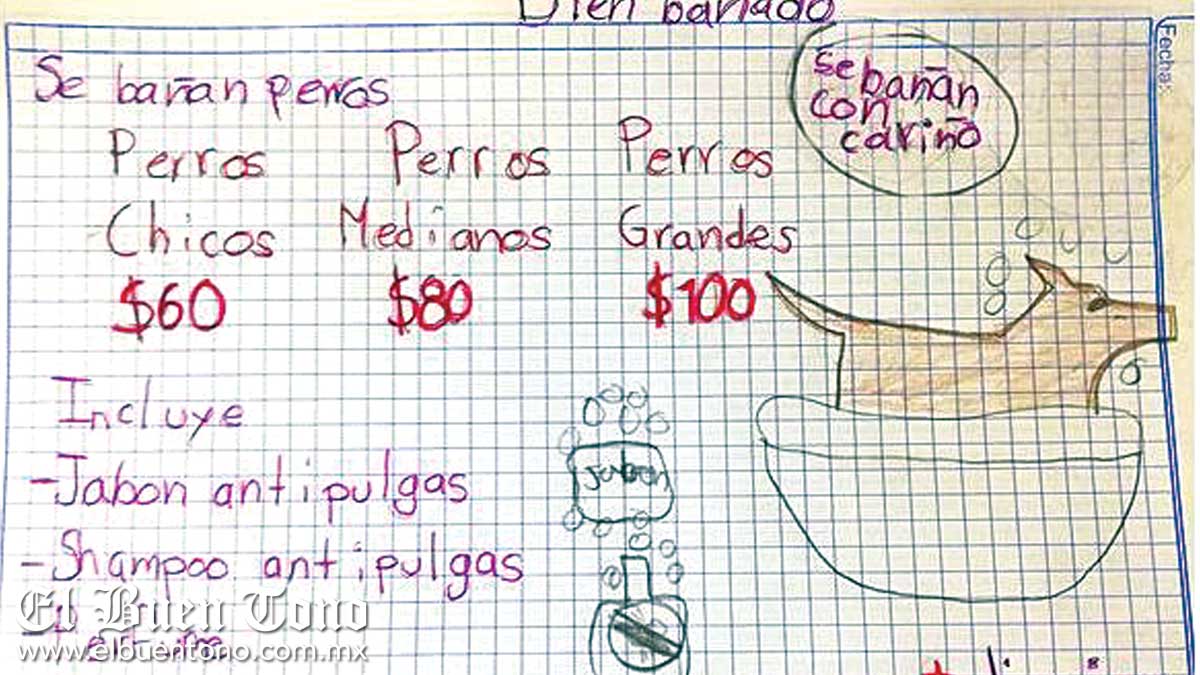 Bien bañado
Fecha:
Se bañan perros
Se bañan
con
cariño
Perros Perros Perros
Chicos Medianos Grandes
$60 $80 $100
Incluye
-Jabon antipulgas
Jabon
-Shampoo antipulgas
El Buen Tono
www.elbuentono.com.mx